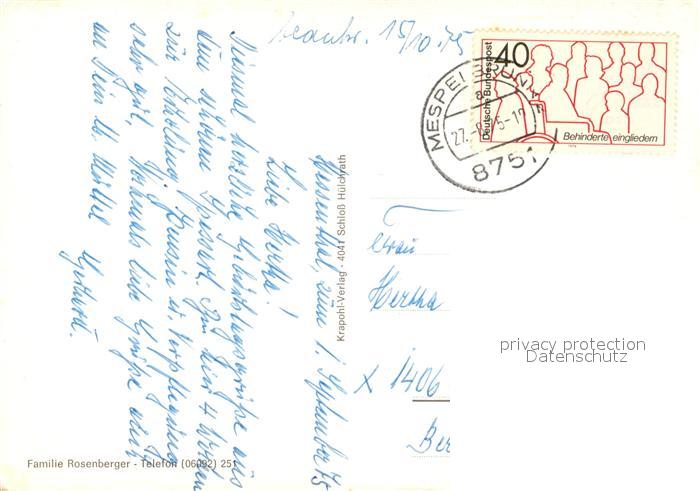 beantw. 15/10.75
Wiesenthal, zum 1. September 75
Liebe Hertha!
Diesmal herzliche Geburtstagsgrüße aus
dem schönen Spessart. Bin hier 4 Wochen
zur Erholung. Pension u. Verpflegung
sehr gut. Nochmals liebe Grüße auch
an Dein lb. 
Gertrud.
Familie Rosenberger - Telefon (06092) 251
Krapohl-Verlag - 4041 Schloß Hülchrath
40
Deutsche Bundespost
Behinderte eingliedern
1974
MESPELBRUNN
8751
Frau
Hertha
X 1406
Ber
privacy protection
Datenschutz